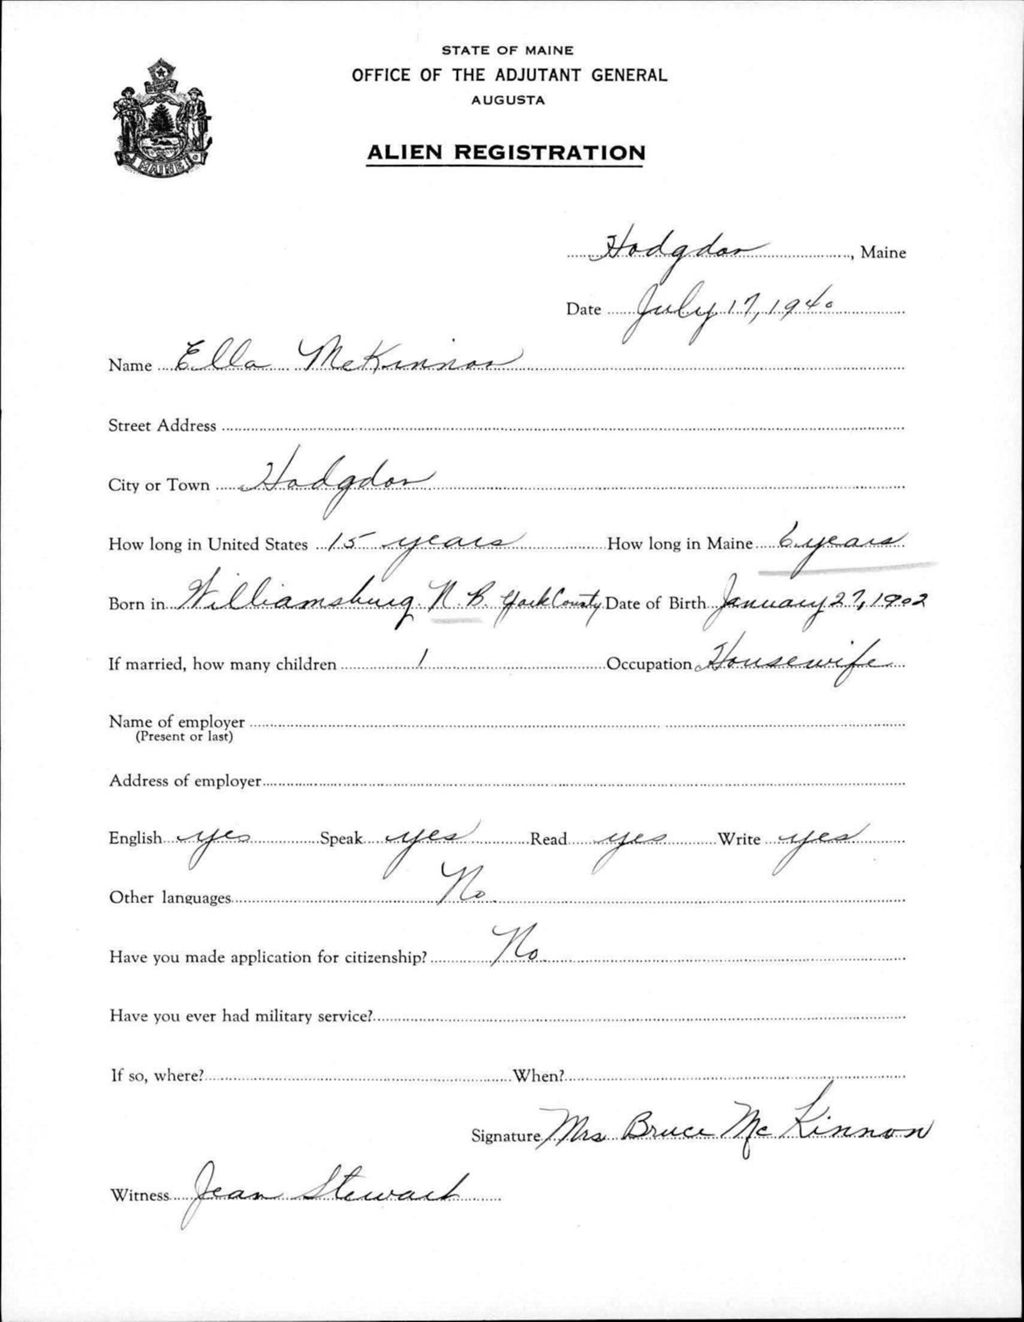 STATE OF MAINE
OFFICE OF THE ADJUTANT GENERAL
AUGUSTA
ALIEN REGISTRATION
MAINE
Hodgdon, Maine
Date July 17, 1940
Name Ella McKinnon
Street Address
City or Town Hodgdon
How long in United States 15 years How long in Maine 6 years
Born in Williamsburg N. B. York County Date of Birth January 27, 1902
If married, how many children 1 Occupation Housewife
Name of employer
(Present or last)
Address of employer
English yes Speak yes Read yes Write yes
Other languages No
Have you made application for citizenship? No
Have you ever had military service?
If so, where? When?
Signature Mrs Bruce Mc Kinnon
Witness Jean Stewart